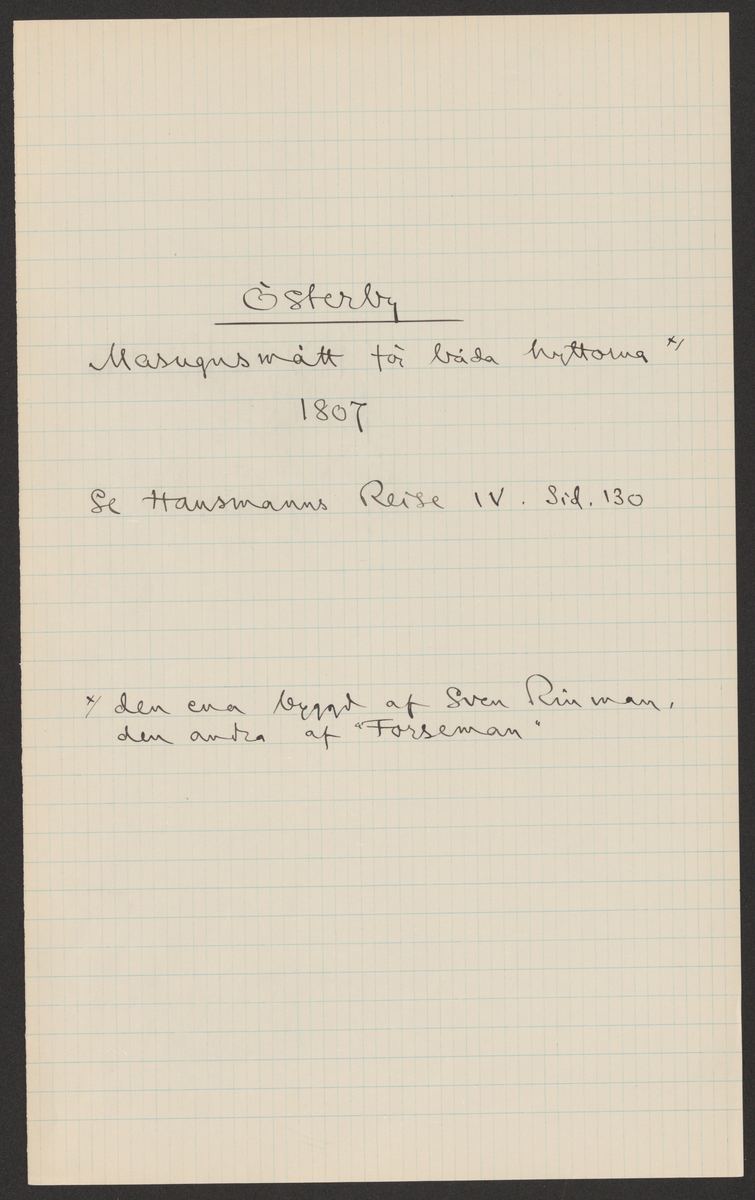 Österby
Masugnsmått för båda hyttorna x/
1807
Se Hausmanns Reise IV. Sid. 130
x/ den ena byggd af Sven Rinman,
den andra af "Forseman"